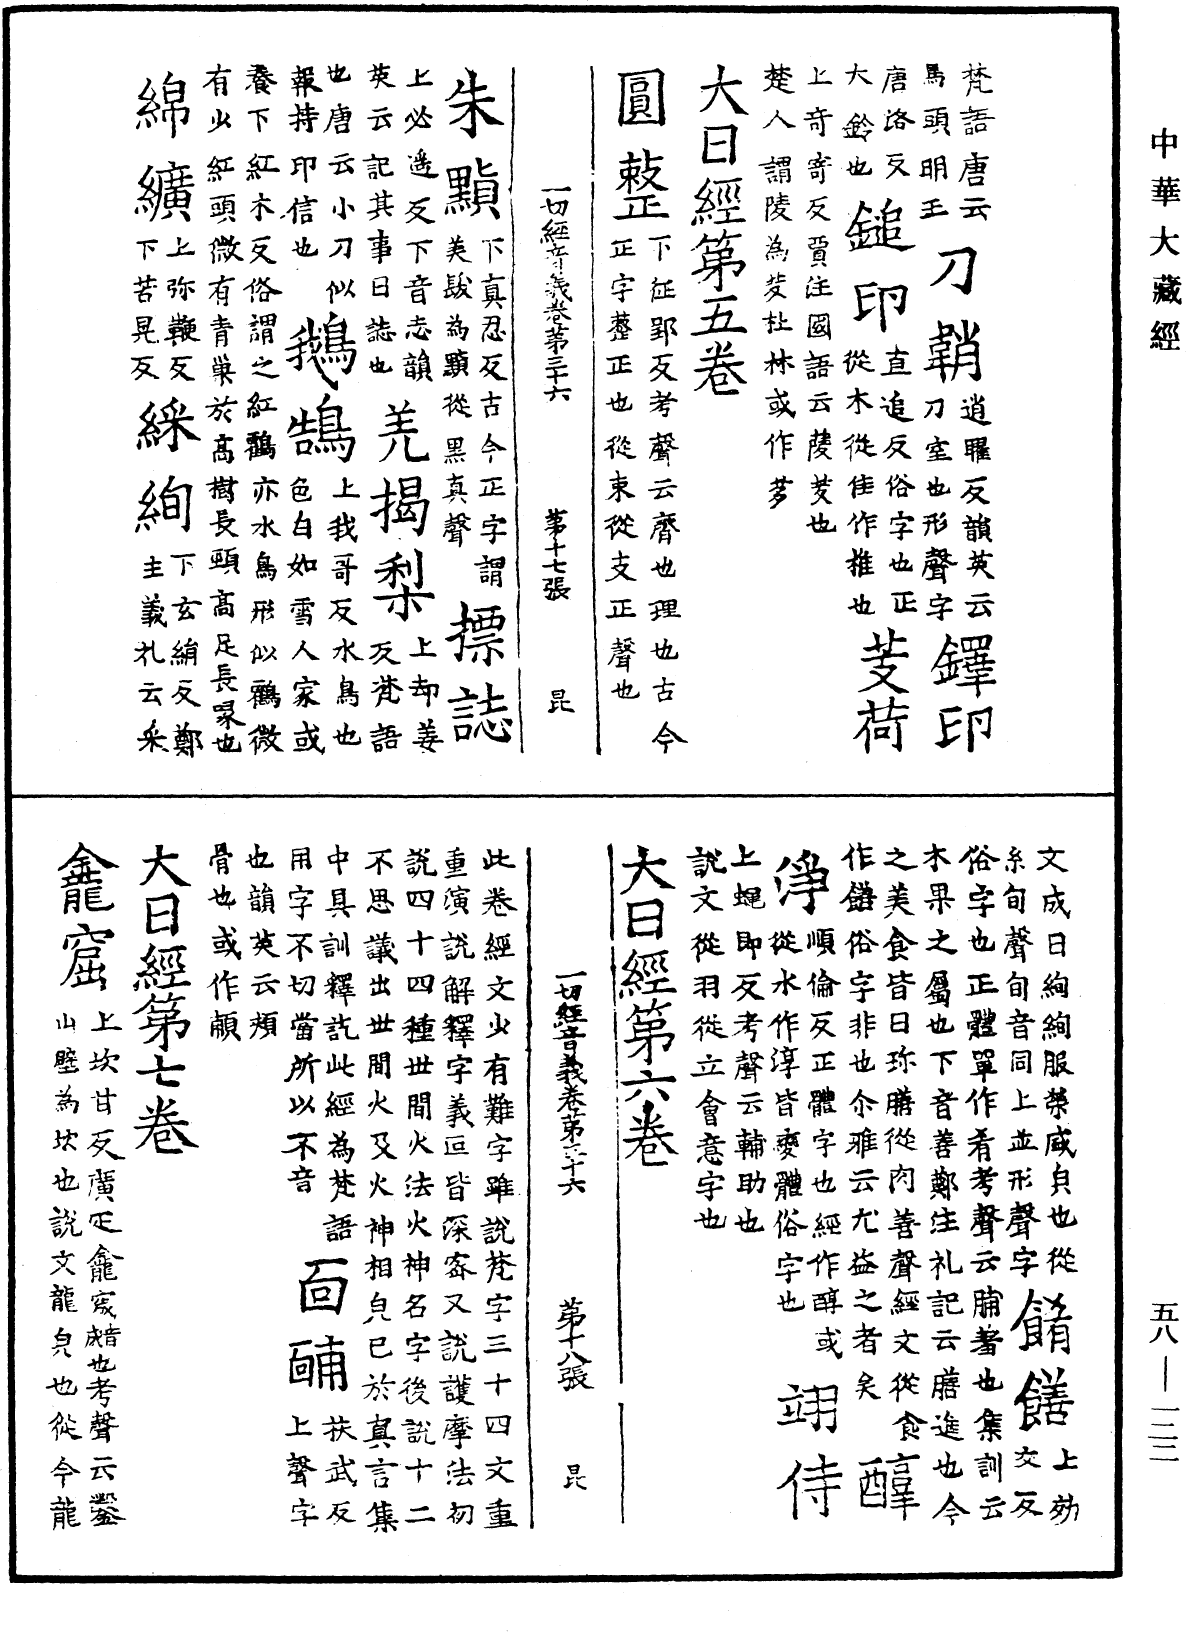 中華大藏經
梵語唐云
馬頭明王
刀鞘
逍曜反韻英云
刀室也形聲字
鐸印
唐洛反
大鈴也
鎚印
直追反俗字也正
從木從隹作椎也
芰荷
上奇寄反賈注國語云蔆芰也
楚人謂陵為芰杜林或作茤
大日經第五卷
圓整
下征郢反考聲云齊也理也古今
正字整正也從束從支正聲也
一切經音義卷第三十六 第十七張 昆
朱顯
下真忍反古今正字謂
美髮為顯從黑真聲
摽誌
上必遙反下音志韻
英云記其事曰誌也
羌揭梨
上却姜
反梵語
也唐云小刀似
報持印信也
鵝鵠
上我哥反水鳥也
色白如雪人家或
養下紅木反俗謂之紅鶴亦水鳥形似鶴微
有少紅頭微有青巢於高樹長頸高足長㖮也
綿纊
上弥鞭反
下苦晃反
綵絢
下玄絹反鄭
主義礼云采
文成曰絢絢服榮盛皃也從
糸旬聲旬音同上並形聲字
餚饍
上効
交反
俗字也正體單作肴考聲云脯羞也集訓云
木果之屬也下音善鄭注礼記云膳進也今
之美食皆曰珎膳從肉善聲經文從食
作饍俗字非也尒雅云尤益之者矣
醇
淨
順倫反正體字也經作醇或
從水作淳皆變體俗字也
翊侍
上蠅即反考聲云輔助也
說文從羽從立會意字也
大日經第六卷
一切經音義卷第三十六 第十八張 昆
此卷經文少有難字雖說梵字三十四文重
重演說解釋字義叵皆深密又說護摩法初
說四十四種世間火法火神名字後說十二
不思議出世間火及火神相皃已於真言集
中具訓釋訖此經為梵語
用字不切當所以不音
靣䩉
扶武反
上聲字
也韻英云頰
骨也或作顄
大日經第七卷
龕窟
上坎甘反廣疋龕宬也考聲云鑿
山壁為坎也說文龍皃也從今龍
五八—一二二